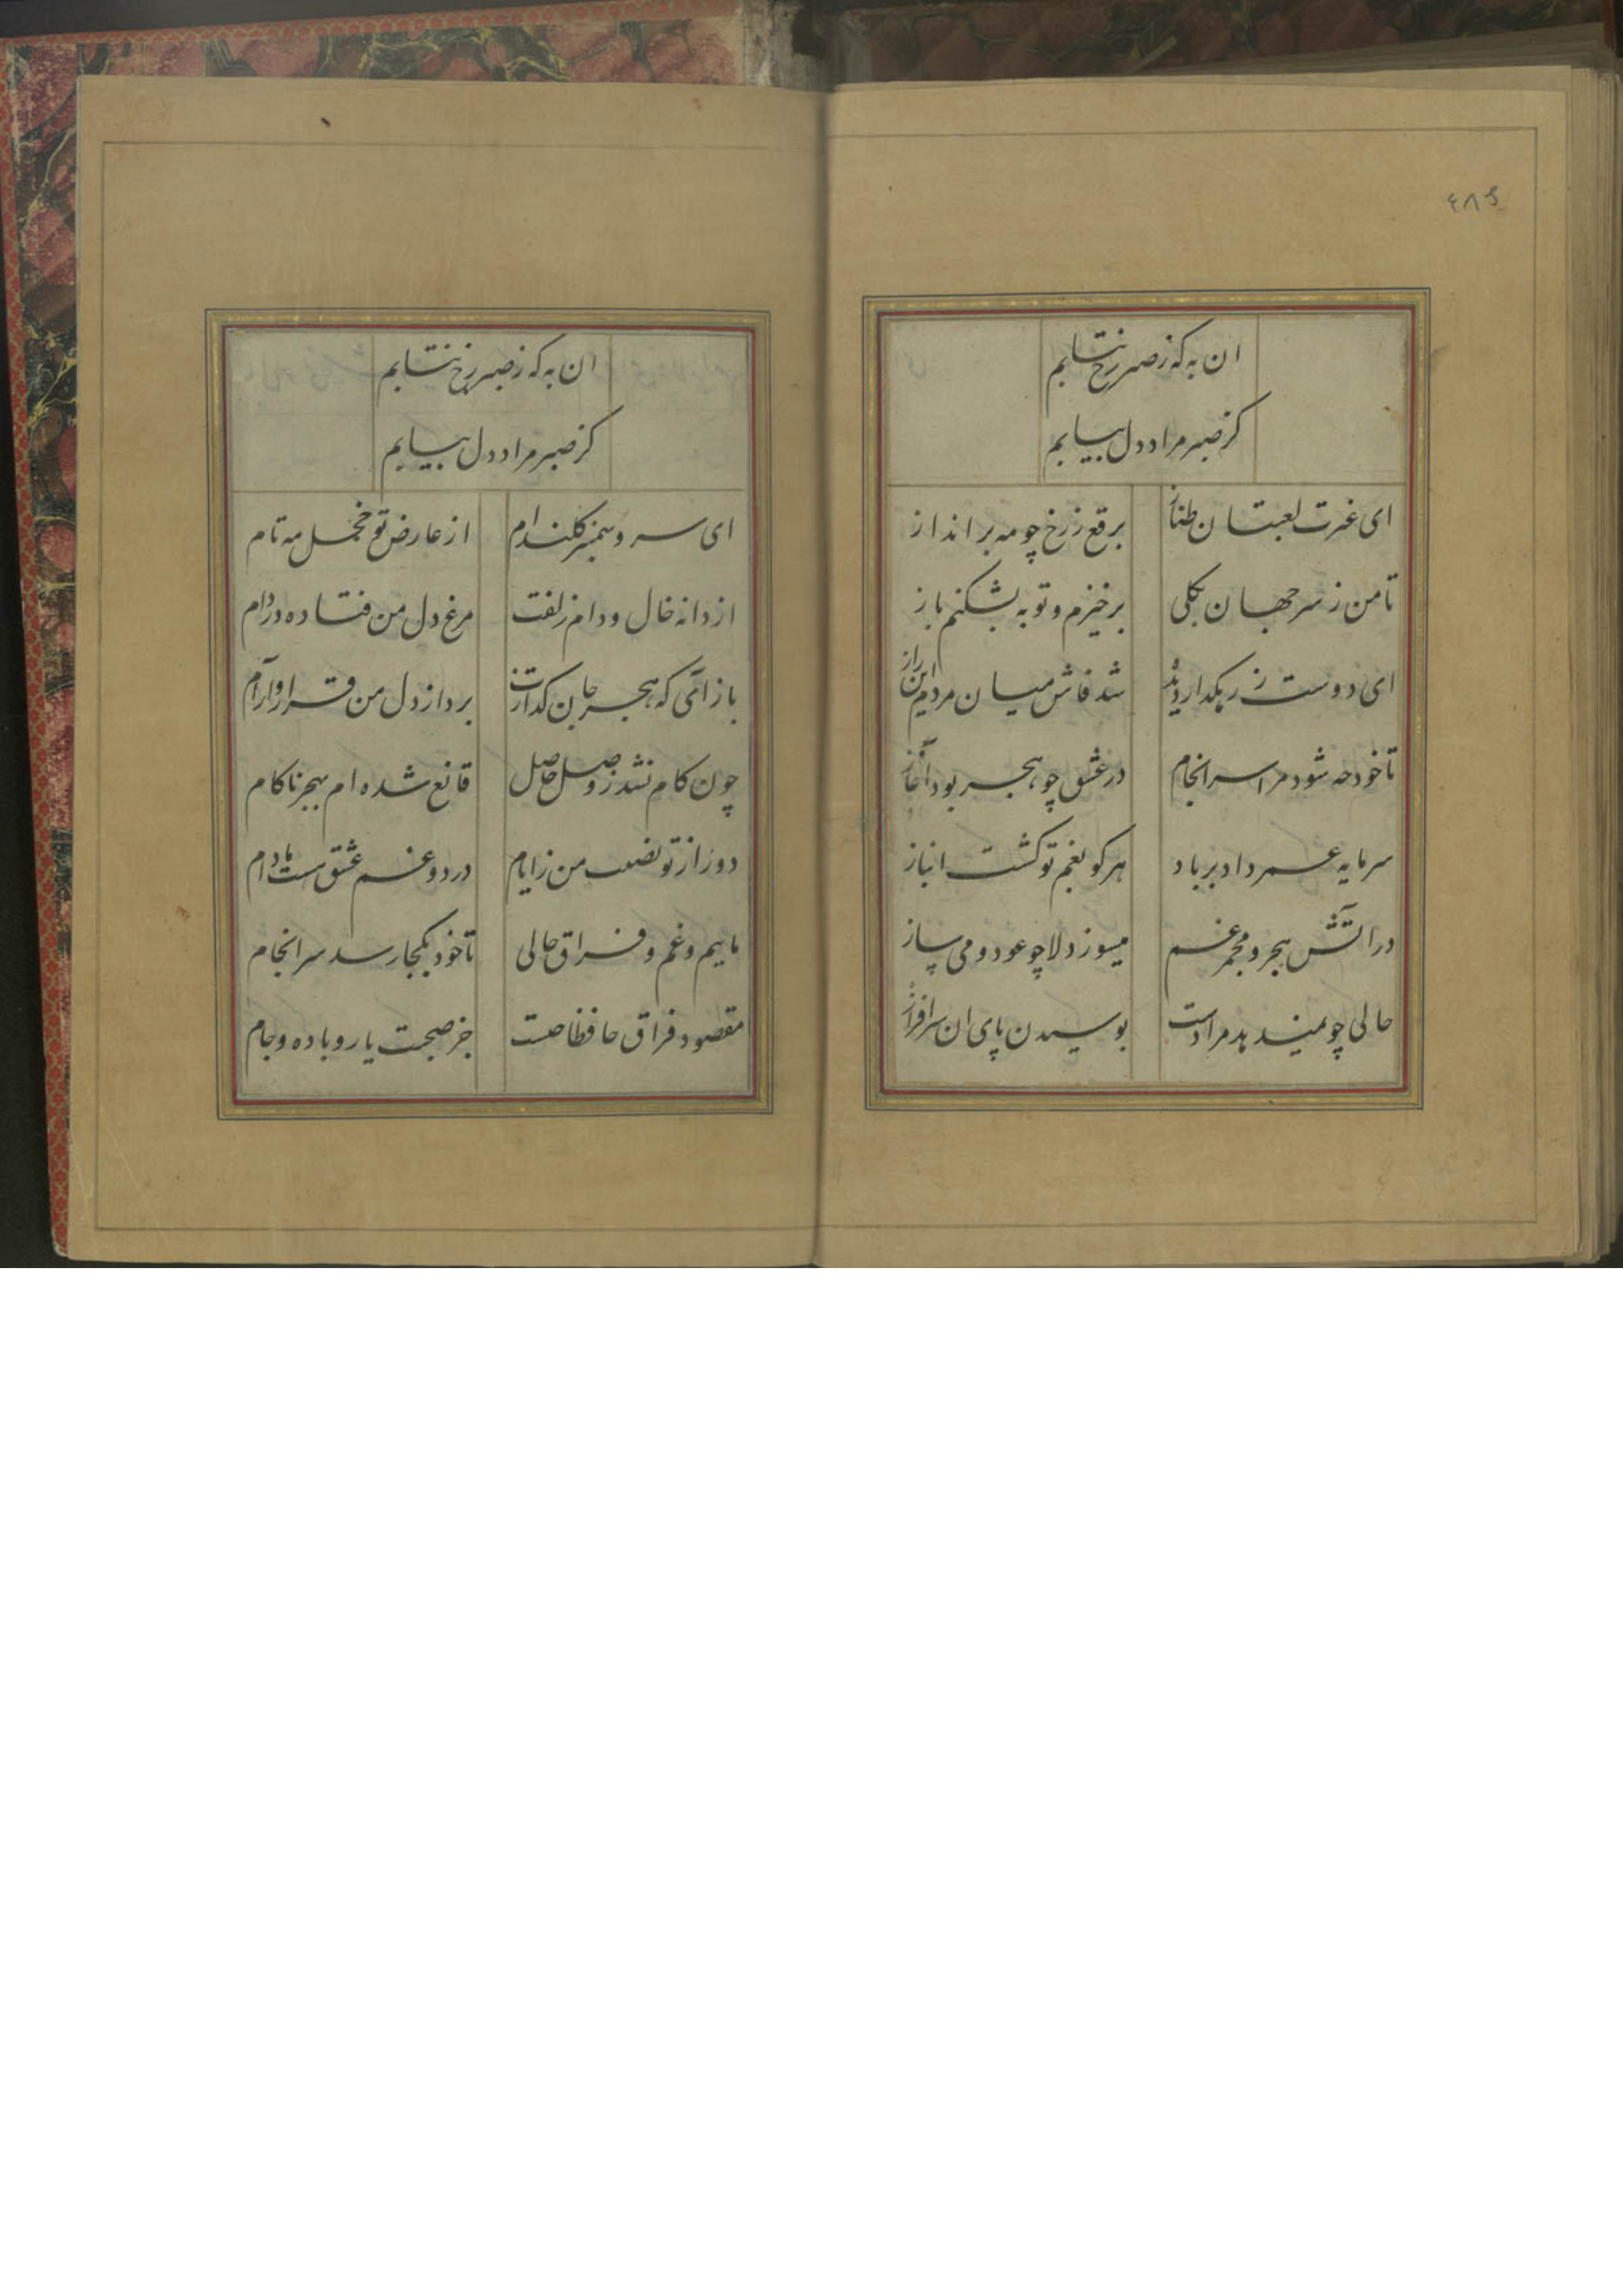 ٤٨٤
ان به که ز صبر رخ نتابم
کز صبر مراد دل بیابم
ای غیرت لعبتان طناز برقع ز رخ چو مه بر انداز
تا من ز سر جهان بکلی برخیزم و توبه بشکنم باز
ای دوست ز رهکدار دیده شد فاش میان مردم این راز
تا خود چه شود مرا سرانجام در عشق چو هجر بود آغاز
سرمایه عمر داد بر باد هر کو بغم تو کشت انباز
در آتش هجر و مجمر غم میسوز دلا چو عود و می ساز
حالی چو نمیدهد مرادت بوسیدن پای ان سرافراز
ان به که ز صبر رخ نتابم
کز صبر مراد دل بیابم
ای سرو سمنبر کلندام از عارض تو خجل مه تام
از دانه خال و دام زلفت مرغ دل من فتاده در دام
باز آی که هجر جان کدازت برد از دل من قرار و آرام
چون کام نشد ز وصل حاصل قانع شده ام بهجر ناکام
دور از تو نصیب من ز ایام درد و غم عشق هست مادام
ماییم و غم و فراق حالی تا خود بکجا رسد سرانجام
مقصود فراق حافظا چیست جز صحبت یار و باده و جام